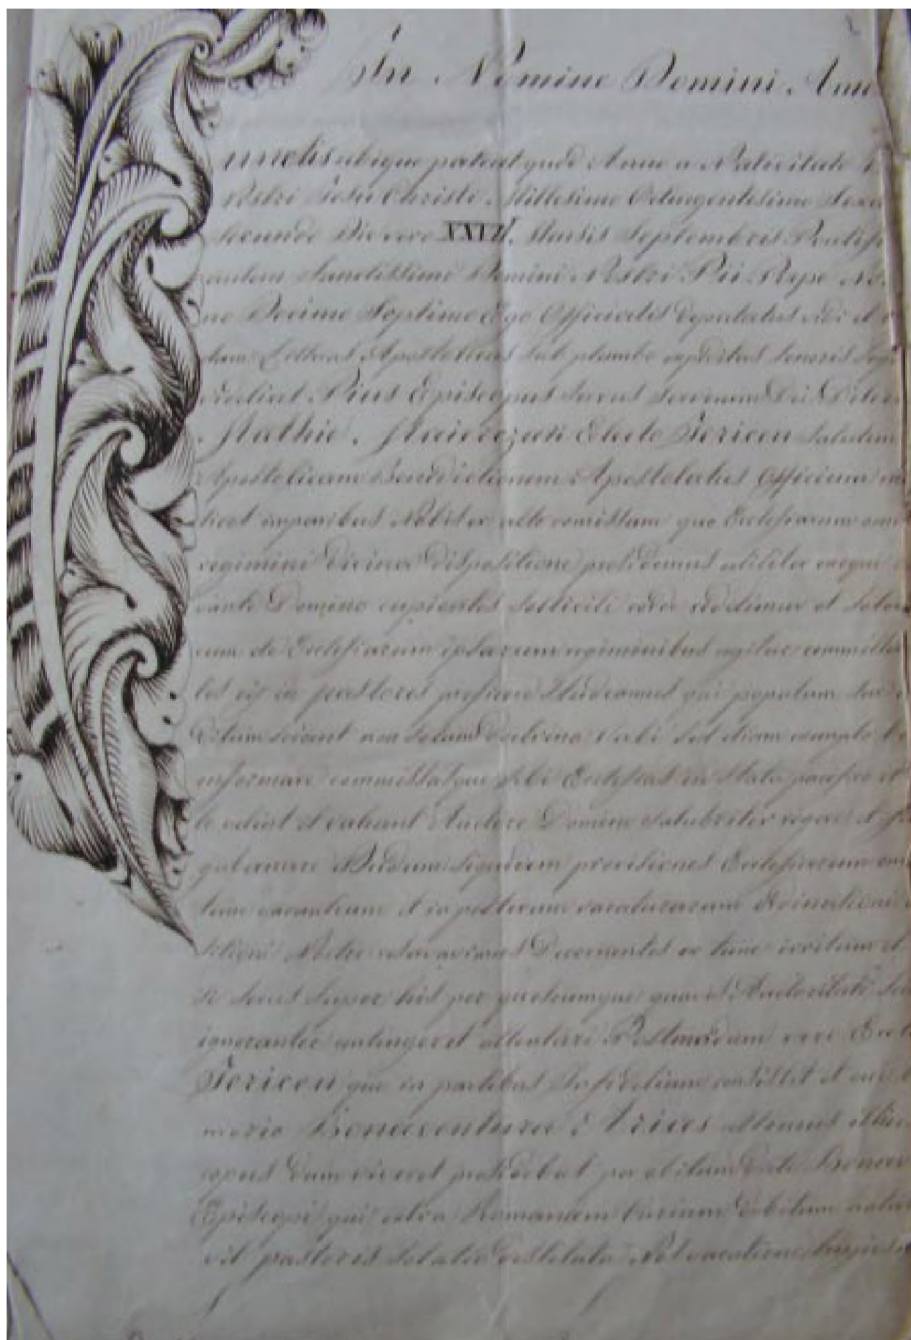 In Nomine Domini. Am
Cunctis ubique pateat quod Anno a Nativitate
Nostri Jesu Christi Millesimo Octingentesimo Sexa
secundo Die vero Mensis Septembris Pontifi
autem Sanctissimi Domini Nostri Pii Pape No
no Decimo Septimo Ego Officialis deputatus vidi et
dam Litteras Apostolicas sub plumbo expeditas tenoris
videlicet Pius Episcopus Servus Servorum Dei Dilecto
Mathie Electo Jericen Salutem
Apostolicam Benedictionem Apostolatus Officium
licet imparibus Nobis ex alto comissum quo Ecclesiarum omn
regimini divina dispositione presidemus utiliter exequi
vante Domino cupientes solliciti corde reddimur et soler
cum de Ecclesiarum ipsarum regiminibus agitur committen
les eis in pastores preficere studeamus qui populum sue
ditum sciant non solum doctrina Verbi sed etiam exemplo
informare commissasque sibi Ecclesias in statu pacifico et
le velint et valeant Auctore Domino salubriter regere et
gubernare Dudum siquidem provisiones Ecclesiarum omn
tunc vacantium et in posterum vacaturarum Ordinationi
sitioni Nostre reservavimus Decernentes ex tunc irritum et
si secus super his per quoscumque quavis Auctoritate
ignoranter contingeret attentari Postmodum vero
Jericen que in partibus Infidelium consistit et cui
morie Bonaventura Arices ultimus illius
copus dum viveret presidebat per obitum dicti Bonaven
Episcopi qui extra Romanam Curiam debitum natur
vit pastoris solatio destituta Nos vacatione hujusm